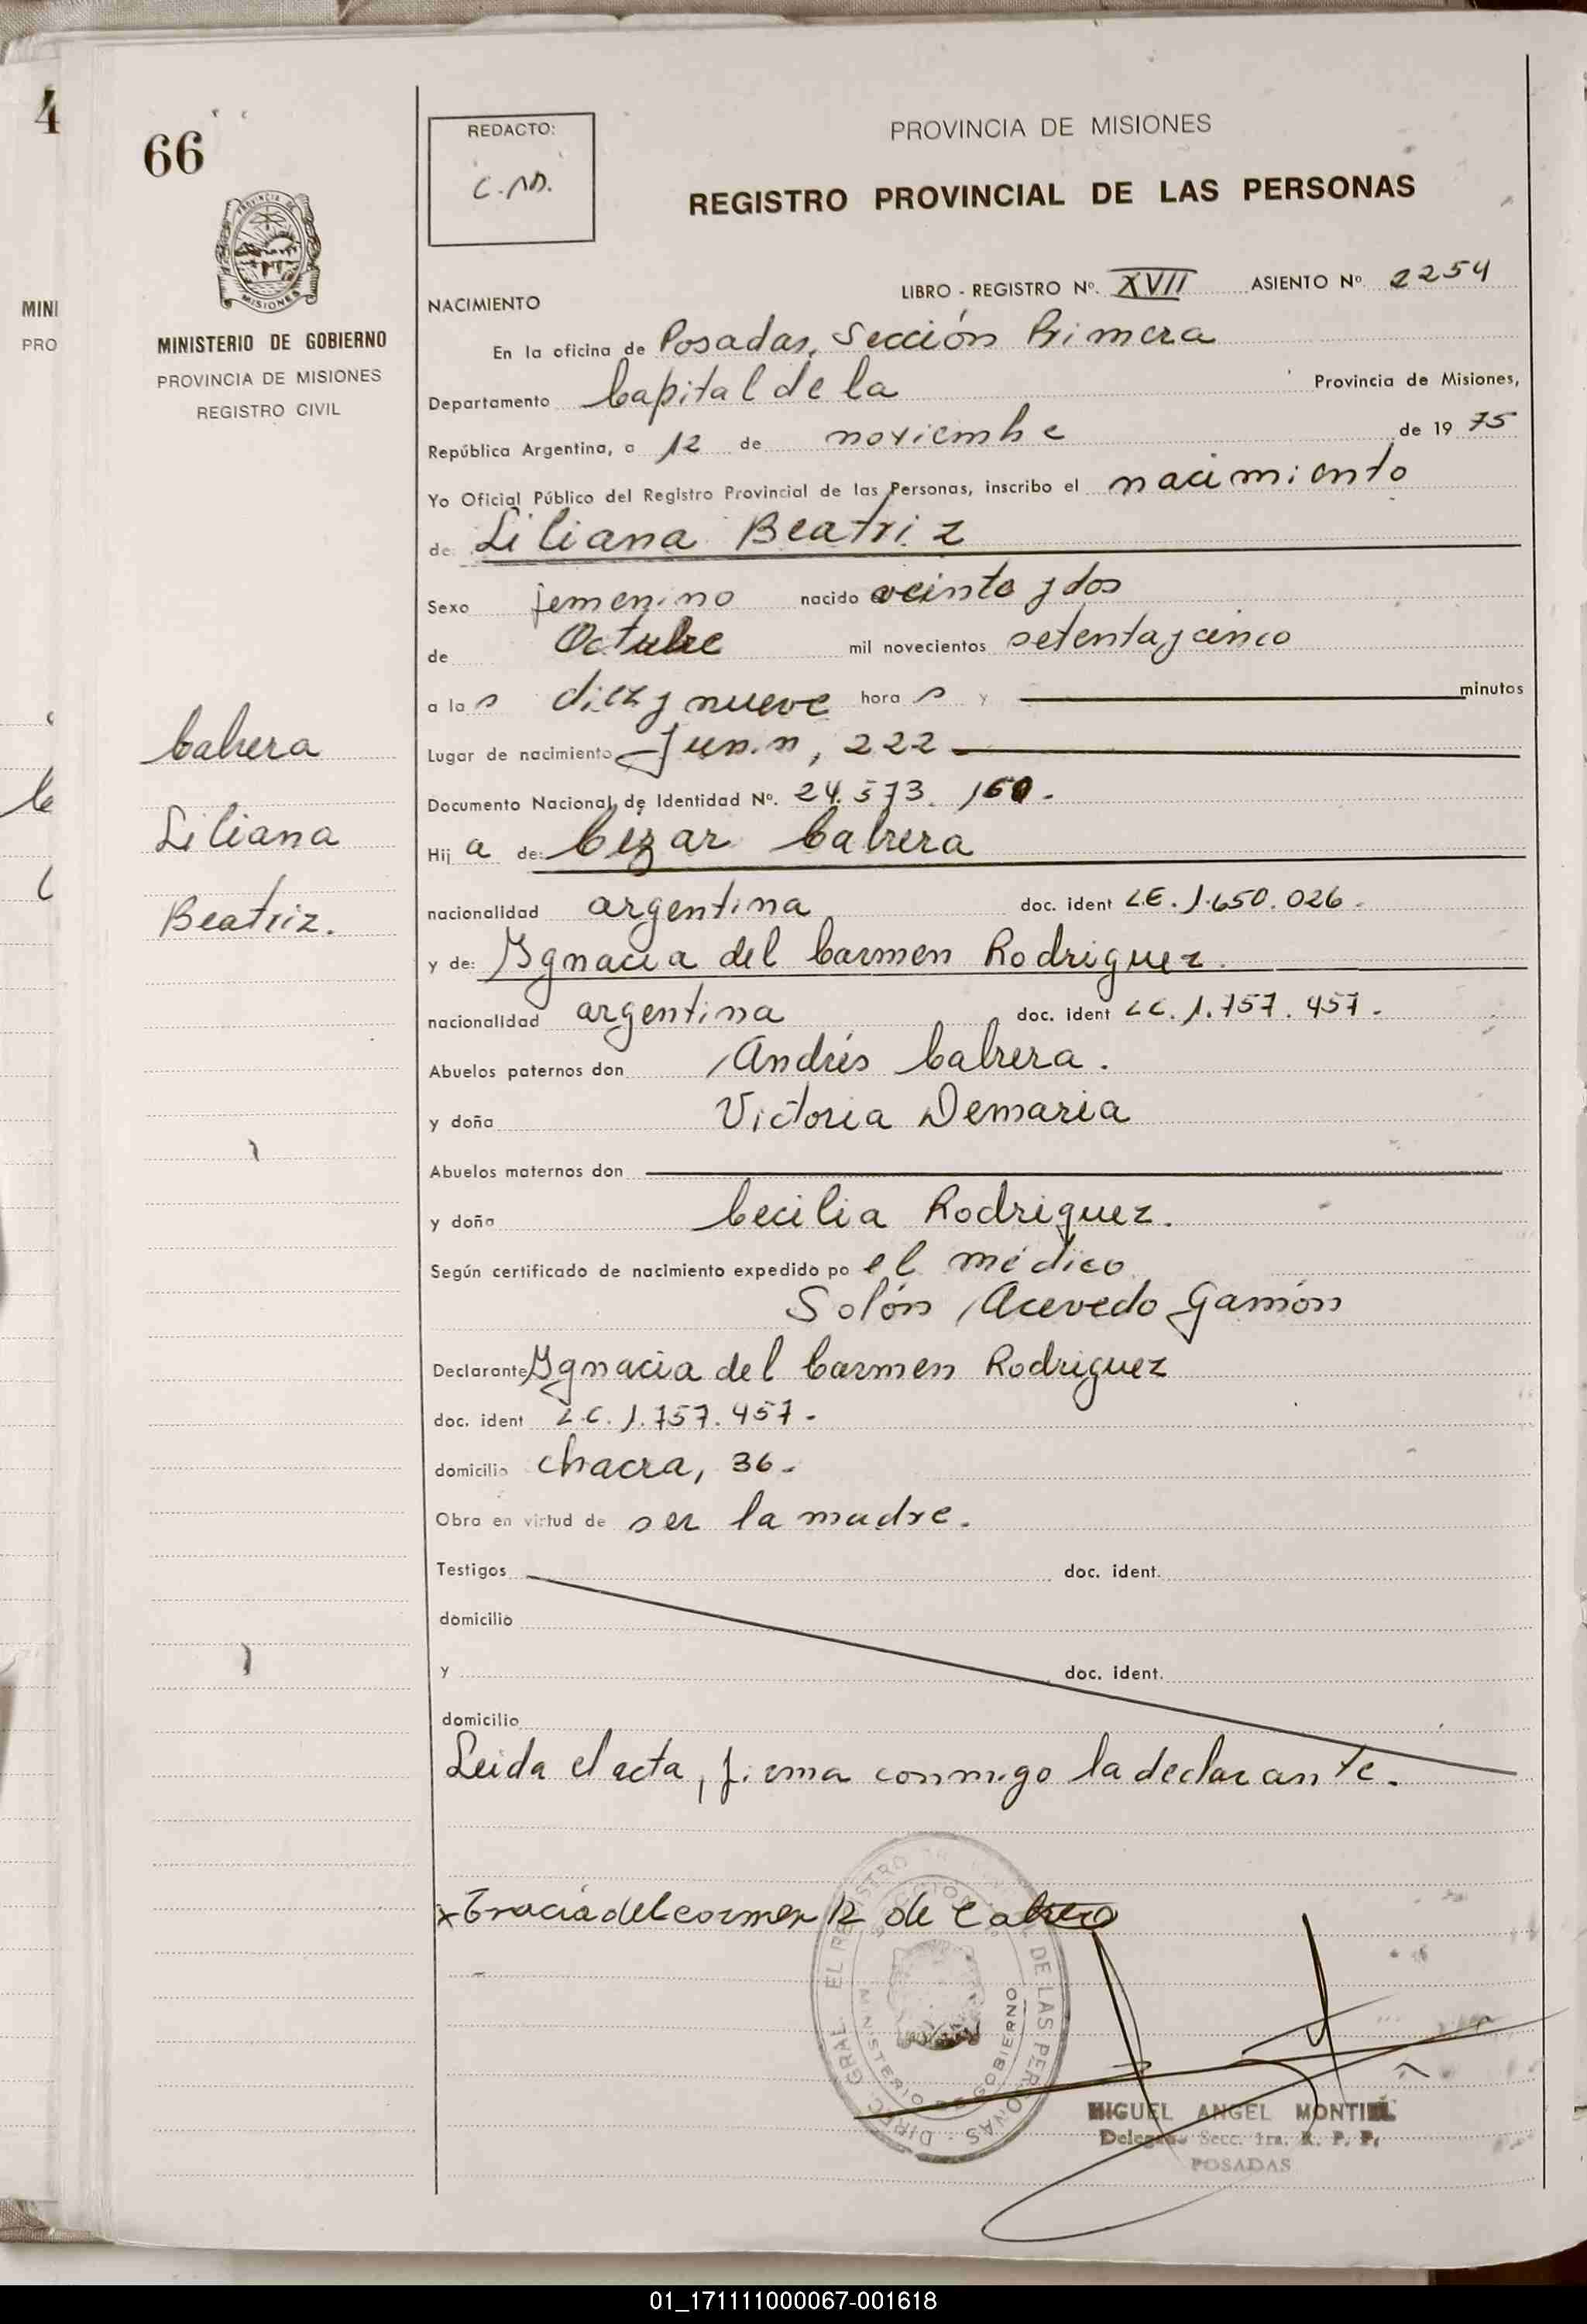 4
66
MINI
PRO
MINISTERIO DE GOBIERNO
PROVINCIA DE MISIONES
REGISTRO CIVIL
Cabrera
Liliana
Beatriz.
REDACTO:
PROVINCIA DE MISIONES
REGISTRO PROVINCIAL DE LAS PERSONAS
LIBRO - REGISTRO Nº. XVII ASIENTO Nº 2254
NACIMIENTO
En la oficina de Posadas, Sección Primera
Departamento Capital de la Provincia de Misiones,
República Argentina, a 12 de noviembre de 19 75
Yo Oficial Público del Registro Provincial de las Personas, inscribo el nacimiento
de: Liliana Beatriz
Sexo femenino nacido veinte y dos
de Octubre mil novecientos setenta y cinco
a la s diez y nueve hora s y minutos
Lugar de nacimiento Junin, 222
Documento Nacional de Identidad Nº. 24.573.160.
Hij a de: Cézar Cabrera
nacionalidad argentina doc. ident L.E. 1.650.026.
y de: Ygnacia del Carmen Rodriguez.
nacionalidad argentina doc. ident L.C. 1.757.457.
Abuelos paternos don Andrés Cabrera.
y doña Victoria Demaria
Abuelos maternos don
y doña Cecilia Rodriguez.
Según certificado de nacimiento expedido po el médico
Solón Acevedo Gamón
Declarante Ygnacia del Carmen Rodriguez
doc. ident L.C. 1.757.457.
domicilio chacra, 36.
Obra en virtud de ser la madre.
Testigos doc. ident.
domicilio
y doc. ident.
domicilio
Leida el acta, firma conmigo la declarante.
x del carmen R de Cabrera
DIREC. GRAL. EL REGISTRO DE LAS PERSONAS
MINISTERIO DE GOBIERNO
MIGUEL ANGEL MONTIEL
Delegado Secc. 1ra. R. P. P.
POSADAS
01_171111000067-001618